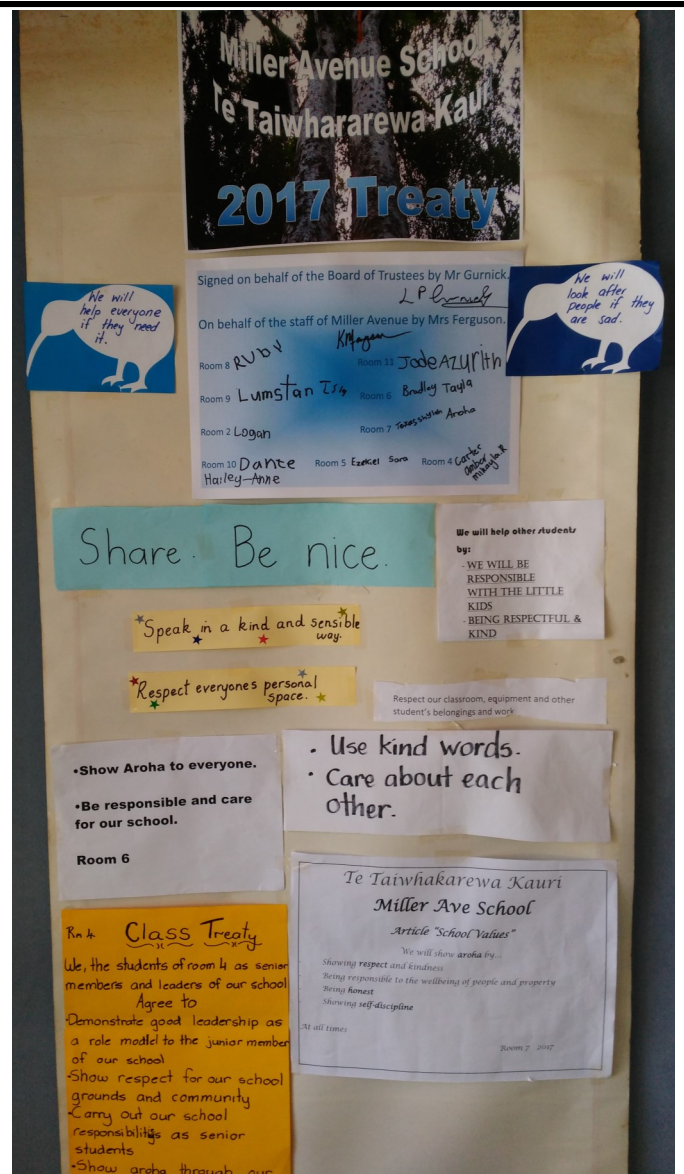 Miller Avenue School
Te Taiwhararewa Kauri
2017 Treaty
Signed on behalf of the Board of Trustees by Mr Gurnick.
On behalf of the staff of Miller Avenue by Mrs Ferguson.
Room 8 RUbY
Room 11 Jade AZUrith
Room 9 Lumstan
Room 6 Bradley Tayla
Room 2 Logan
Room 7 Aroha
Room 10 Dante
Hailey-Anne
Room 5 Ezekiel Sara
Room 4 Carter
amber
mikayla.R
We will
help everyone
if they need
it.
We will
look after
people if they
are sad.
Share. Be nice.
We will help other students
by:
- WE WILL BE
RESPONSIBLE
WITH THE LITTLE
KIDS
- BEING RESPECTFUL &
KIND
Speak in a kind and sensible
way.
Respect everyones personal
space.
Respect our classroom, equipment and other
student's belongings and work
•Show Aroha to everyone.
•Be responsible and care
for our school.
Room 6
• Use kind words.
• Care about each
other.
Te Taiwhakarewa Kauri
Miller Ave School
Article "School Values"
We will show aroha by...
Showing respect and kindness
Being responsible to the wellbeing of people and property
Being honest
Showing self-discipline
At all times
Room 7 2017
Rm 4 Class Treaty
We, the students of room 4 as senior
members and leaders of our school
Agree to
•Demonstrate good leadership as
a role model to the junior member
of our school
•Show respect for our school
grounds and community
•Carry out our school
responsibilitys as senior
students
•Show aroha through our